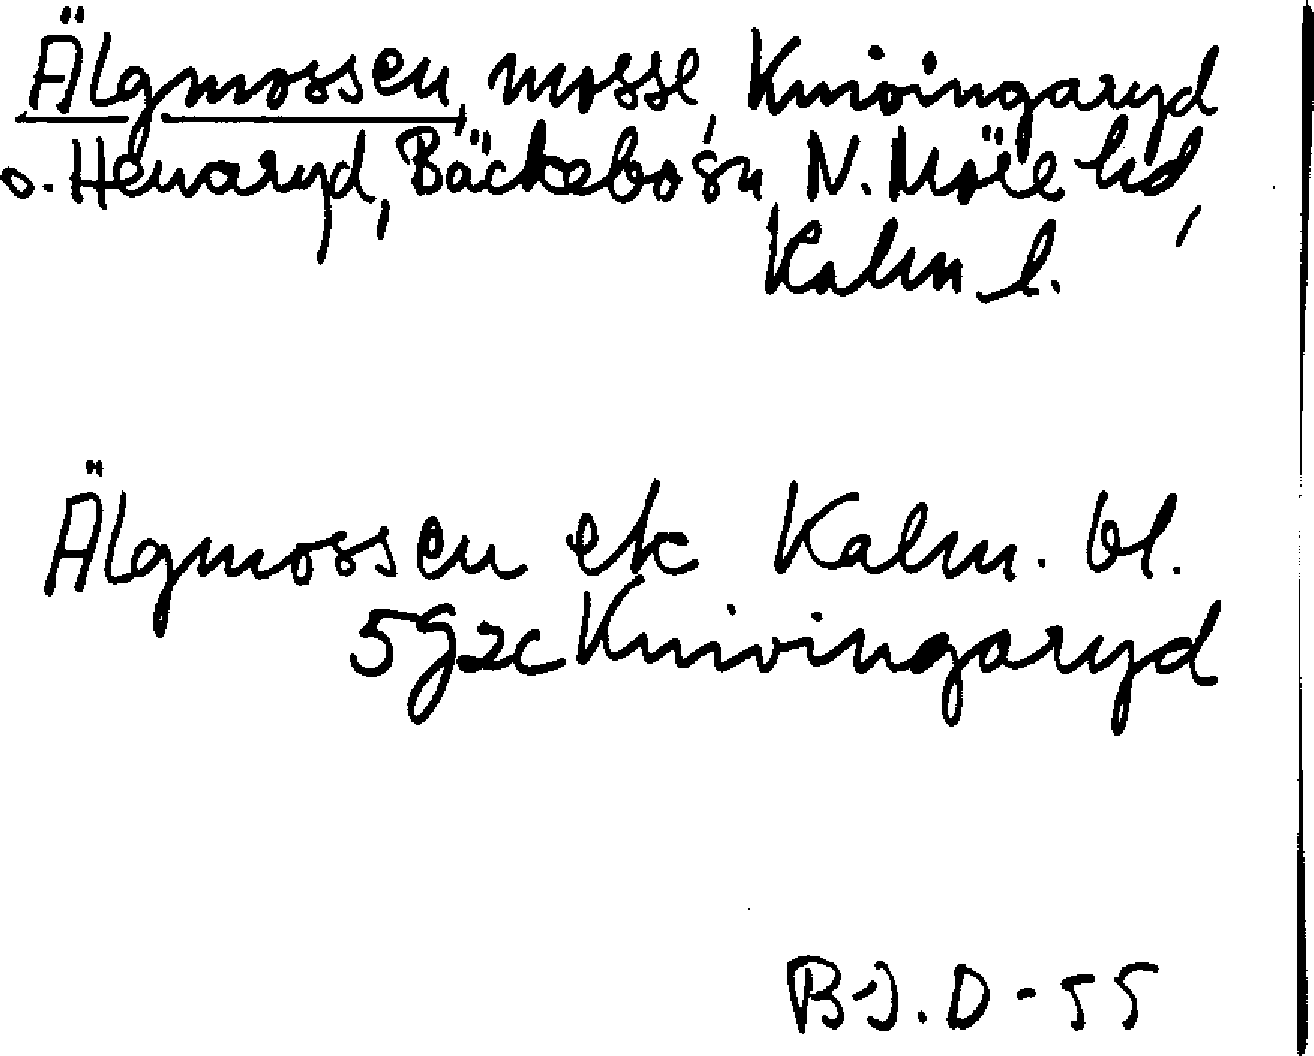 Älgmossen, mosse, Knivingaryd
o. Henaryd, Bäckebo sn, N. Möre hd,
Kalm l.
Älgmossen ek Kalm. bl.
5g2c Knivingaryd
B-J. D-55